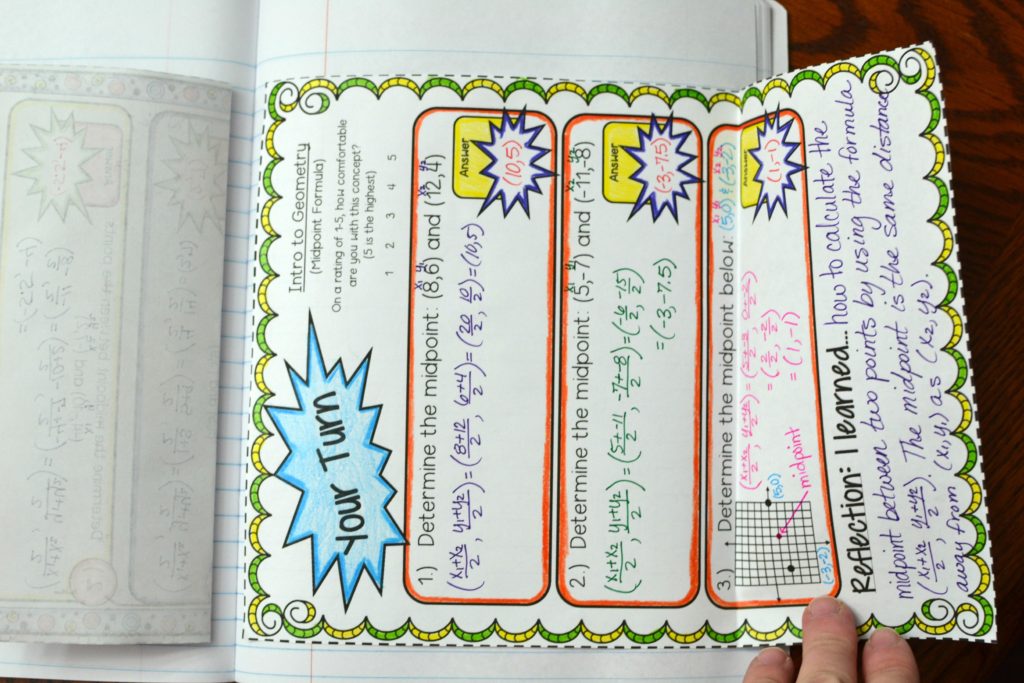 Your Turn
Intro to Geometry
(Midpoint Formula)
On a rating of 1-5, how comfortable
are you with this concept?
(5 is the highest)
1 2 3 4 5
x₁ y₁ x₂ y₂
1.) Determine the midpoint: (8,6) and (12,4)
(x₁+x₂/2, y₁+y₂/2) = (8+12/2, 6+4/2) = (20/2, 10/2) = (10,5)
Answer
(10,5)
x₁ y₁ x₂ y₂
2.) Determine the midpoint: (5,-7) and (-11,-8)
(x₁+x₂/2, y₁+y₂/2) = (5+-11/2, -7+-8/2) = (-6/2, -15/2)
= (-3,-7.5)
Answer
(-3,-7.5)
x₁ y₁ x₂ y₂
3.) Determine the midpoint below: (5,0) & (-3,-2)
(x₁+x₂/2, y₁+y₂/2) = (5+-3/2, 0+-2/2)
= (2/2, -2/2)
= (1,-1)
Answer
(1,-1)
(5,0)
midpoint
(-3,-2)
Reflection: I learned... how to calculate the
midpoint between two points by using the formula
(x₁+x₂/2, y₁+y₂/2). The midpoint is the same distance
away from (x₁,y₁) as (x₂,y₂).